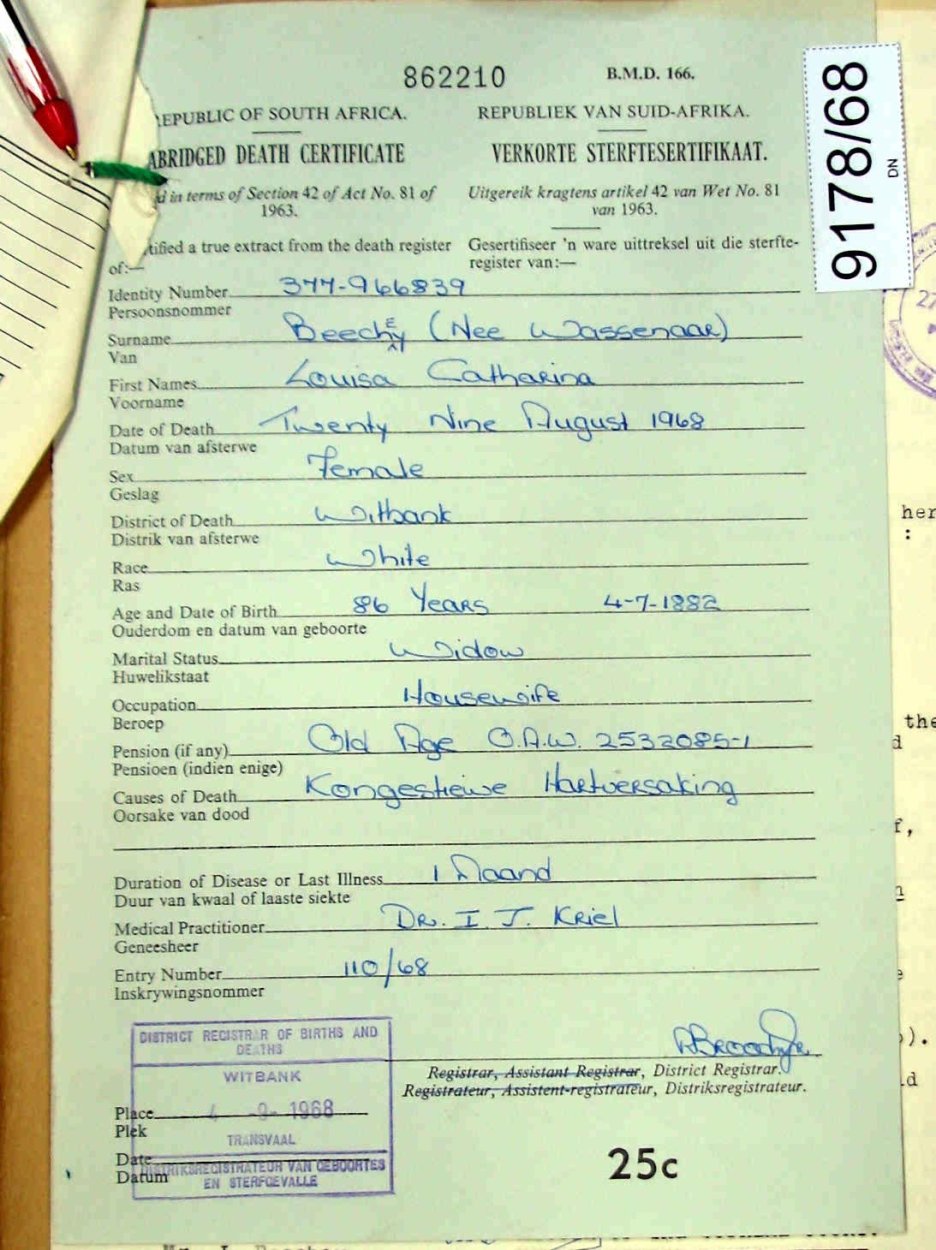 862210
B.M.D. 166.
9178/68
DN
REPUBLIC OF SOUTH AFRICA.
REPUBLIEK VAN SUID-AFRIKA.
ABRIDGED DEATH CERTIFICATE
VERKORTE STERFTESERTIFIKAAT.
d in terms of Section 42 of Act No. 81 of
1963.
Uitgereik kragtens artikel 42 van Wet No. 81
van 1963.
tified a true extract from the death register
of:—
Gesertifiseer 'n ware uittreksel uit die sterfte-
register van:—
Identity Number 377-966839
Persoonsnommer
Surname Beechey (Nee Wassenaar)
Van
First Names Louisa Catharina
Voorname
Date of Death Twenty Nine August 1968
Datum van afsterwe
Sex Female
Geslag
District of Death Witbank
Distrik van afsterwe
Race White
Ras
Age and Date of Birth 86 Years 4-7-1882
Ouderdom en datum van geboorte
Marital Status Widow
Huwelikstaat
Occupation Housewife
Beroep
Pension (if any) Old Age O.A.W. 2532085-1
Pensioen (indien enige)
Causes of Death Kongestiewe Hartversaking
Oorsake van dood
Duration of Disease or Last Illness 1 Maand
Duur van kwaal of laaste siekte
Medical Practitioner Dr. I. J. Kriel
Geneesheer
Entry Number 110/68
Inskrywingsnommer
DISTRICT REGISTRAR OF BIRTHS AND
DEATHS
WITBANK
Place 4 -9- 1968
Plek
TRANSVAAL
Date
Datum
DISTRIKSREGISTRATEUR VAN GEBOORTES
EN STERFGEVALLE
Registrar, Assistant Registrar, District Registrar.
Registrateur, Assistent-registrateur, Distriksregistrateur.
25c
her
:
the
d
f,
).
27